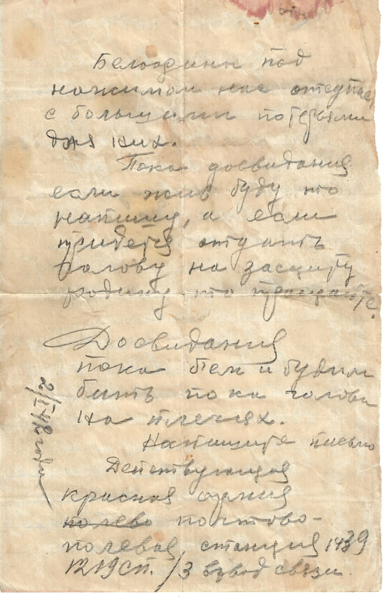 Белофины под
нажимом нас отступают
с большими потерями
для них.
Пока досвидания
если жив буду то
напишу, а если
придется отдать
голову на защиту
родины то прощайте.
Досвидания
пока бем и будим
бить пока голова
на плечях.
Напишите письмо
Действующая
красная армия
полево почтово-
полевая, станция 1439
1219 сп. /3 взвод связи.
2/I-42 года